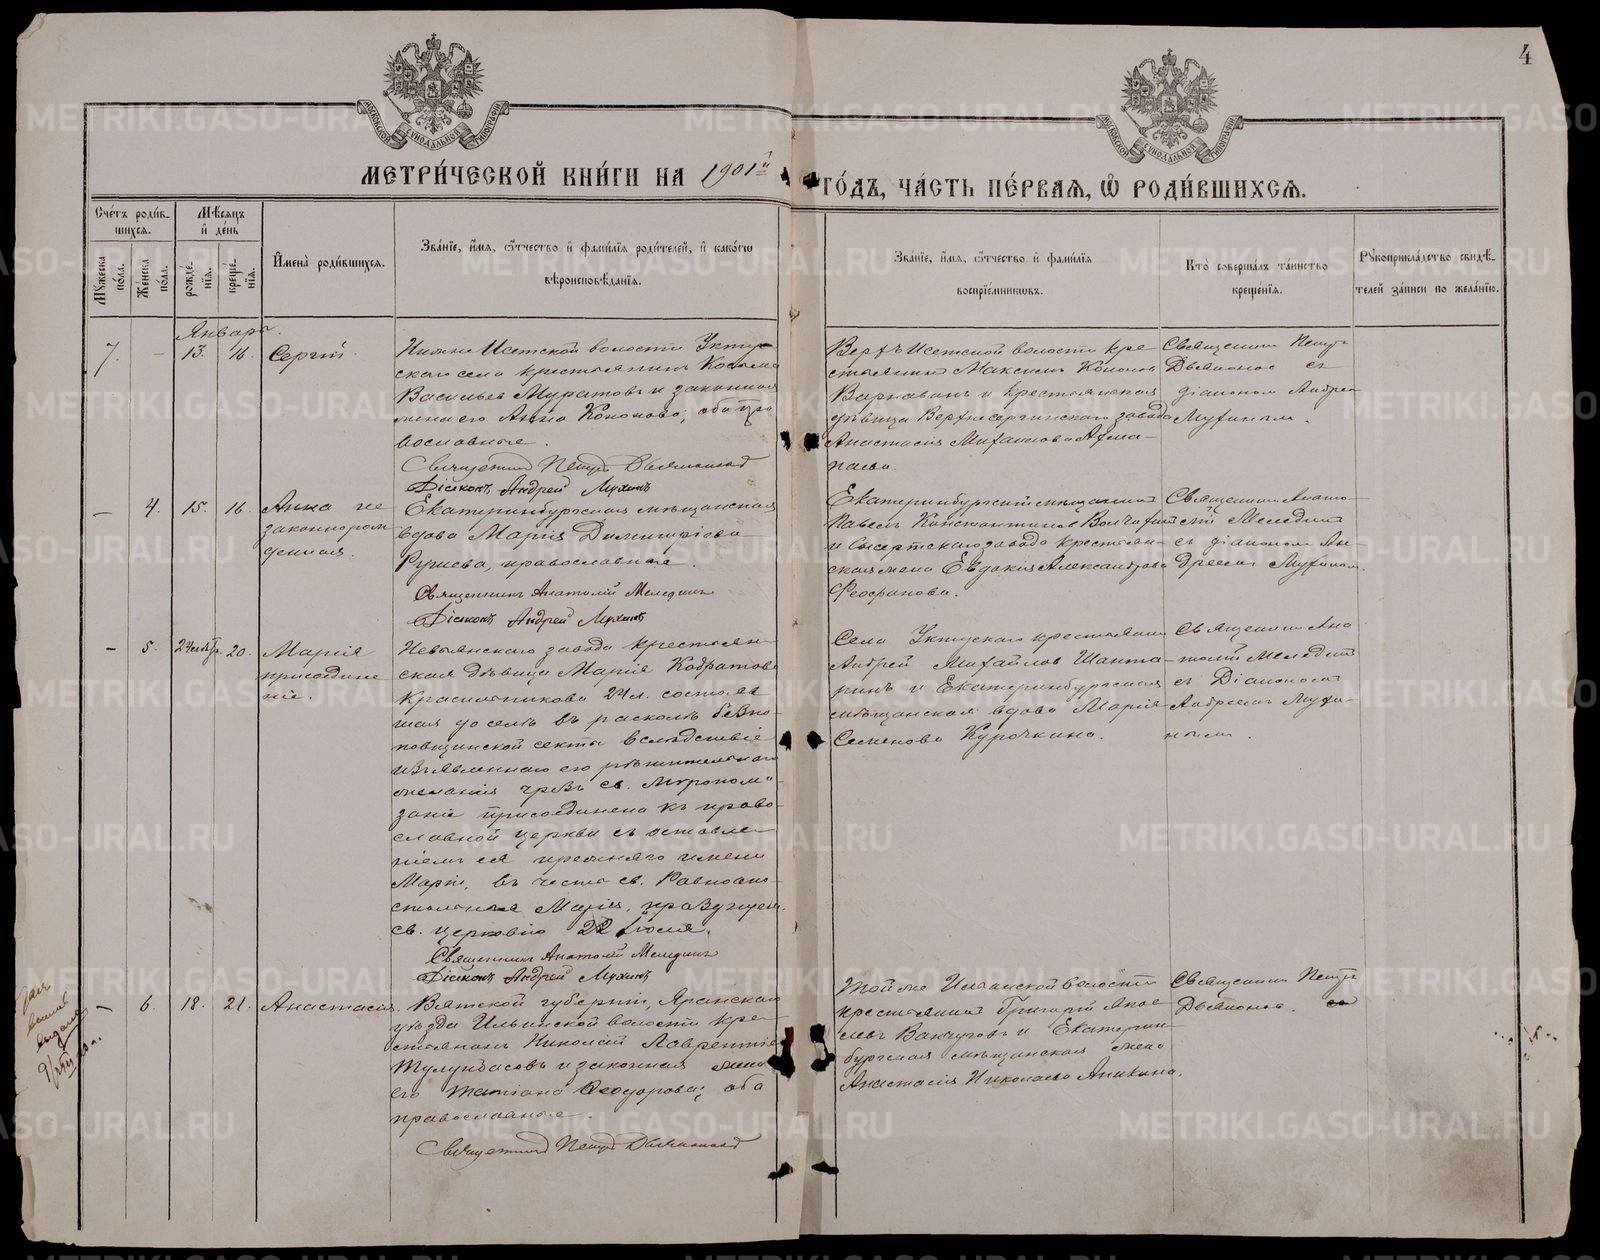 4
МЕТРИ́ЧЕСКОЙ КНИ́ГИ НА 1901й ГО́ДЪ, ЧА́СТЬ ПЕ́РВАѦ, Ѡ҆ РОДИ́ВШИХСѦ.
Сче́тъ роди́в-
шихсѧ.
Мꙋ́жеска
по́ла.
Же́нска
по́ла.
Мѣ́сѧцъ
и҆ де́нь
рожде́-
нїѧ.
креще́-
нїѧ.
И҆мена̀ роди́вшихсѧ.
Зва́нїе, и҆́мѧ, ѻ҆́тчество и҆ фами́лїѧ роди́телей, и҆ како́гѡ
вѣроисповѣ́данїѧ.
Зва́нїе, и҆́мѧ, ѻ҆́тчество и҆ фами́лїѧ
воспрїе́мникѡвъ.
Кто̀ соверша́лъ та́инство
креще́нїѧ.
Рꙋкоприкла́дство свидѣ́-
телей за́писи по жела́нїю.
Января.
7. - 13. 16. Сергій.
Нижне Исетской волости Уктус-
скаго села крестьянинъ Косьма
Васильевъ Муратовъ и законная
жена его Анна Кононова; оба пра-
вославные.
Священникъ Петръ
Діаконъ Андрей Мухинъ
Верхъ Исетской волости кре-
стьянинъ Максимъ Кононовъ
Варнавинъ и крестьянская
дѣвица Верхнесергинскаго завода
Анастасія Михаилова Афана-
сьева.
Священникъ Петръ
съ
діакономъ Андреемъ
Мухинымъ.
- 4. 15. 16. Анна не
законнорож-
денная.
Екатеринбургская мѣщанская
вдова Марія Димитріева
православная.
Священникъ Анатолій Мелединъ
Діаконъ Андрей Мухинъ
Екатеринбургскій мѣщанинъ
Павелъ Константиновъ
и Сысертскаго завода крестьян-
ская жена Евдокія Александрова
Феофанова.
Священникъ Анато-
лій Мелединъ
съ діакономъ Ан-
дреемъ Мухинымъ.
- 5. 20. Марія
присоедине-
ніе.
Невьянскаго завода крестьян-
ская дѣвица Марія Кодратова
Красильникова 24 л. состояв-
шая доселѣ въ расколѣ безпо-
повщинской секты вслѣдствіе
изъявленнаго ею рѣшительнаго
желанія чрезъ св. Мѵропома-
заніе присоединена къ право-
славной церкви съ оставле-
ніемъ ея прежняго имени
Маріи, въ честь св. Равноапо-
стольныя Маріи, празднуем.
св. церковію 22 Іюля.
Священникъ Анатолій Меледин
Діаконъ Андрей Мухинъ
Села Уктусскаго крестьянинъ
Андрей Михайловъ Шанта-
ринъ и Екатеринбургская
мѣщанская вдова Марія
Семенова Курочкина.
Священникъ Ана-
толій Мелединъ
съ Діакономъ
Андреемъ Мухи-
нымъ.
- 6. 18. 21. Анастасія
Вятской губерніи, Яранскаго
уѣзда Ильинской волости кре-
стьянинъ Николай Лаврентіевъ
Тулунбасовъ и законная жена
его Татіана Ѳеодорова; оба
православные.
Священникъ Петръ
Той же Ильинской волости
крестьянинъ Григорій
Ванчуговъ и Екатерин-
бургская мѣщанская жена
Анастасія Николаева Аникина.
Священникъ Петръ
METRIKI.GASO-URAL.RU